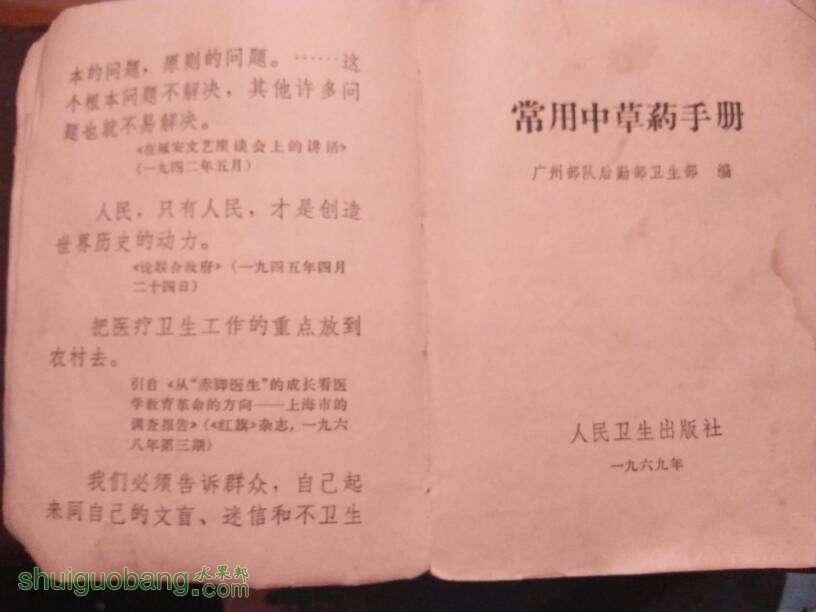 本的问题，原则的问题。……这
个根本问题不解决，其他许多问
题也就不易解决。
《在延安文艺座谈会上的讲话》
（一九四二年五月）
人民，只有人民，才是创造
世界历史的动力。
《论联合政府》（一九四五年四月
二十四日）
把医疗卫生工作的重点放到
农村去。
引自《从“赤脚医生”的成长看医
学教育革命的方向——上海市的
调查报告》（《红旗》杂志，一九六
八年第三期）
我们必须告诉群众，自己起
来同自己的文盲、迷信和不卫生
常用中草药手册
广州部队后勤部卫生部 编
人民卫生出版社
一九六九年
水果邦
shuiguobang.com